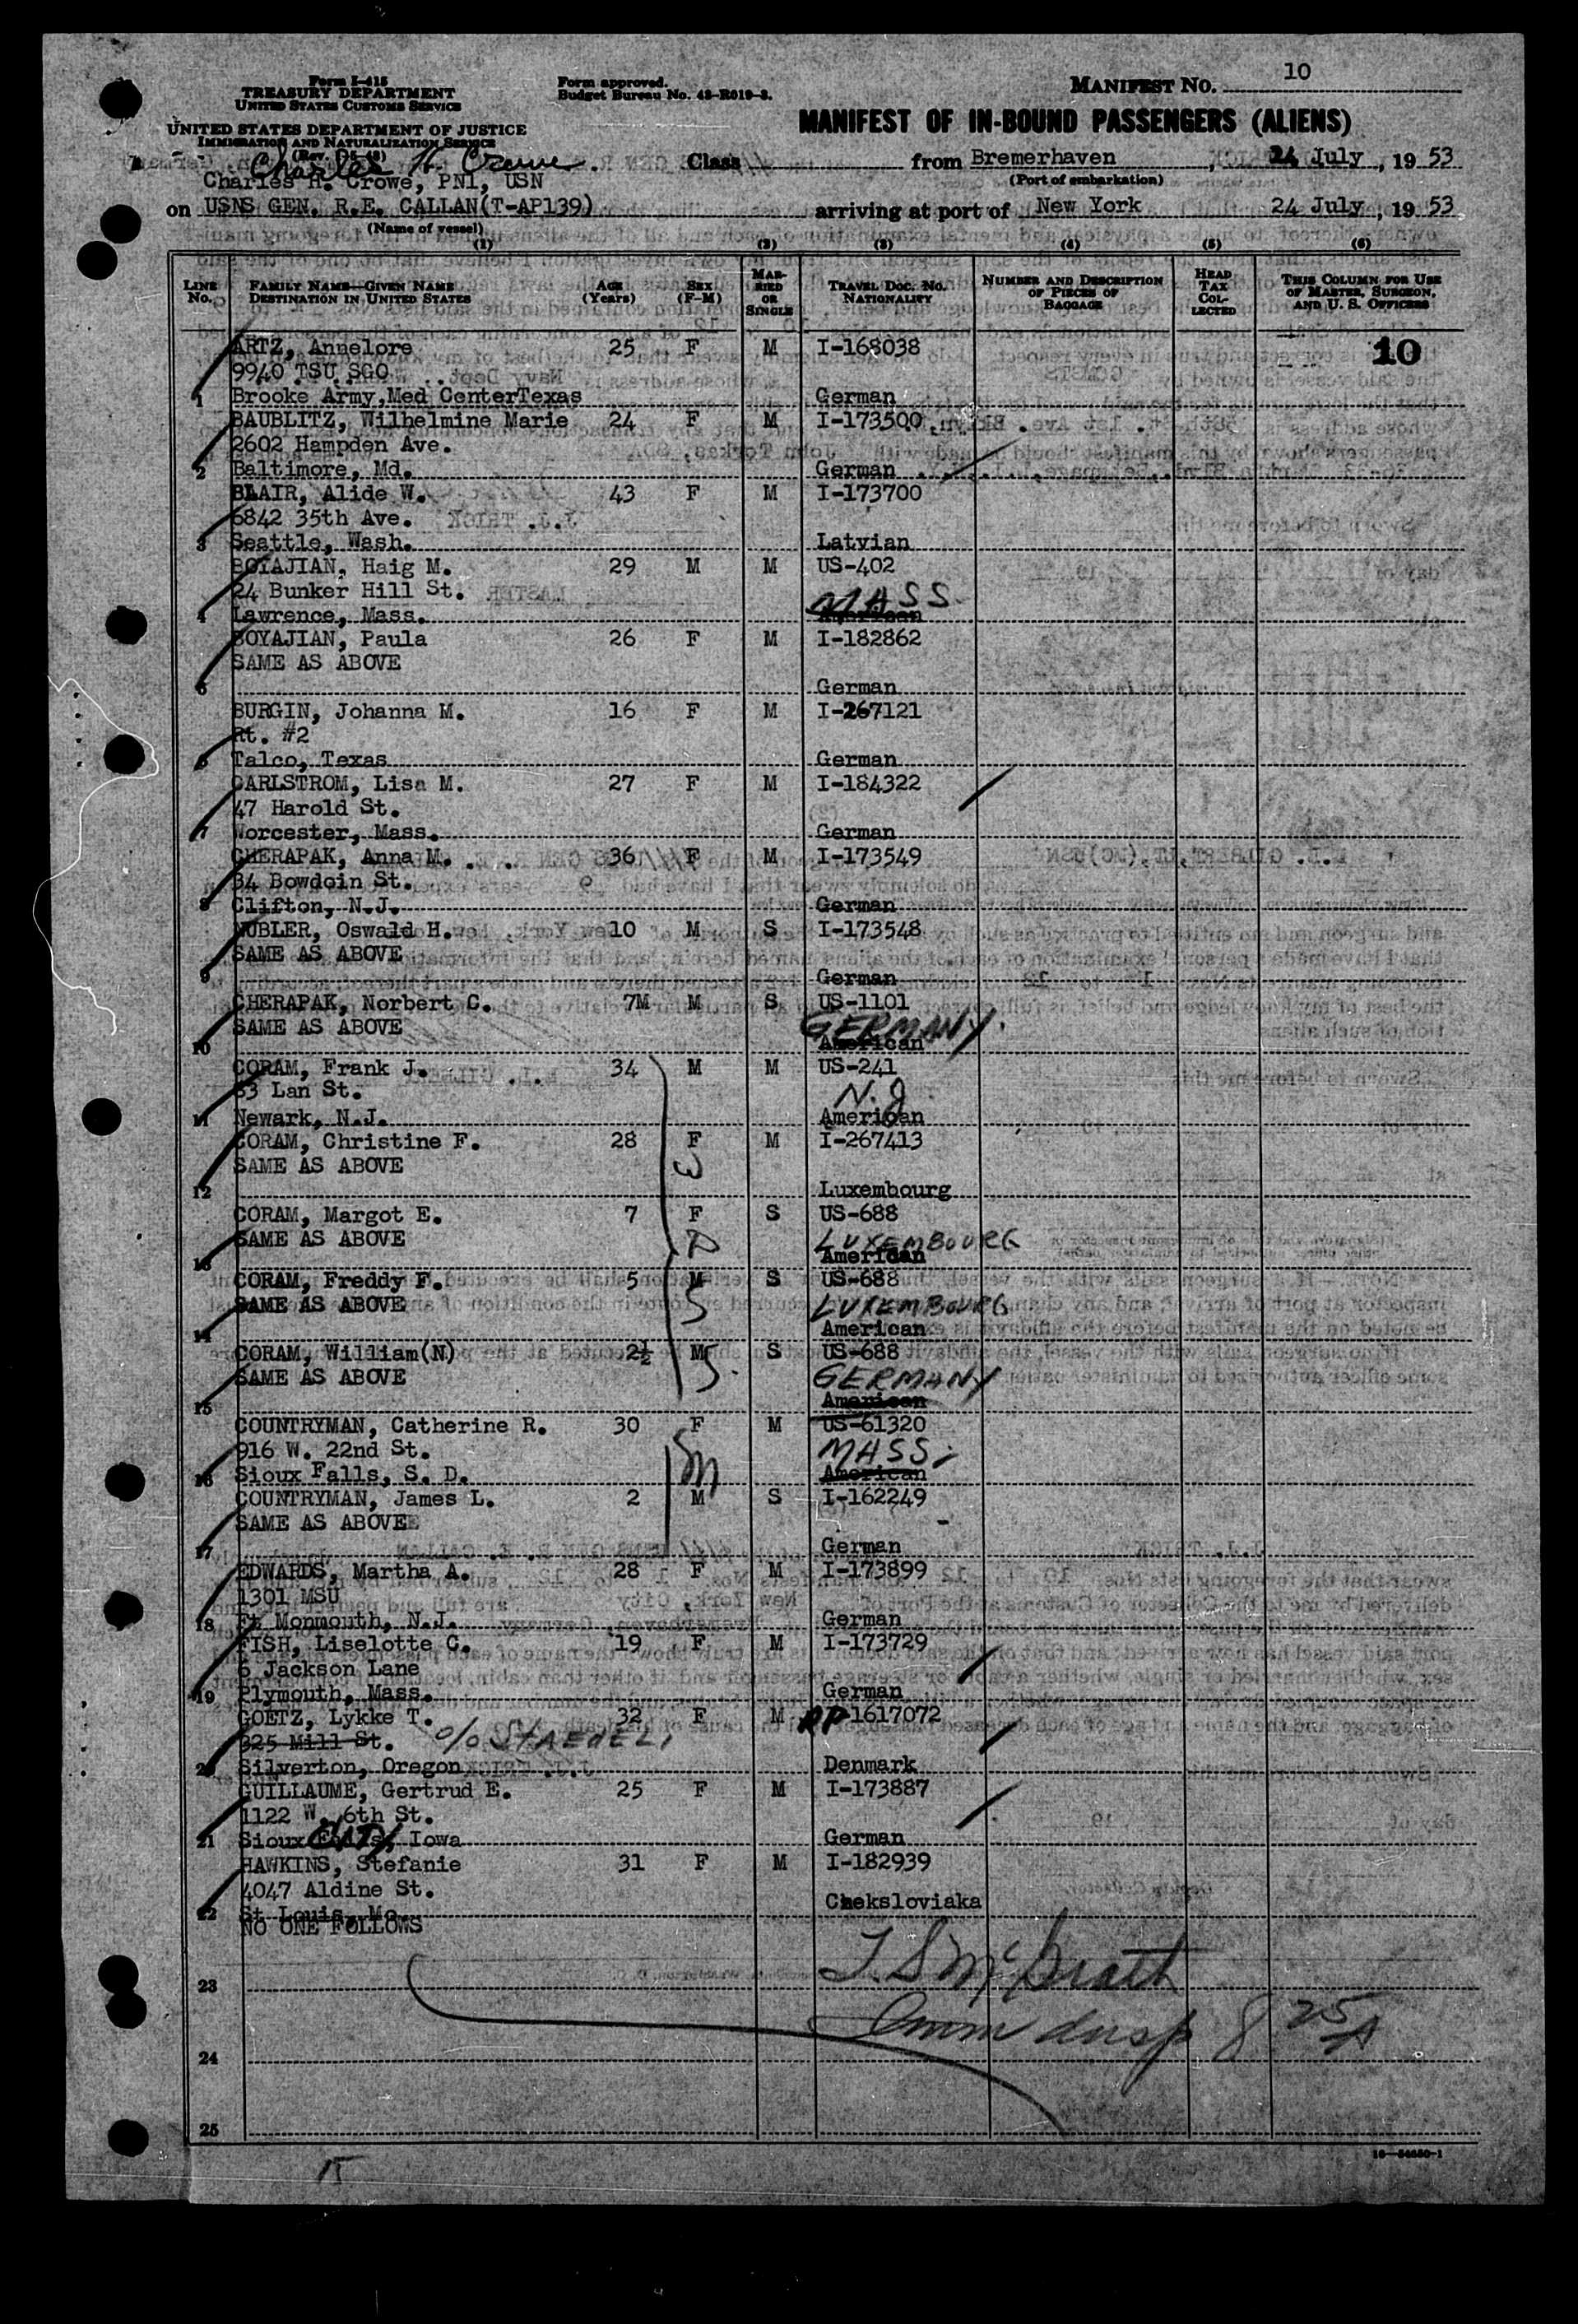 Form I-415
TREASURY DEPARTMENT
UNITED STATES CUSTOMS SERVICE
UNITED STATES DEPARTMENT OF JUSTICE
IMMIGRATION AND NATURALIZATION SERVICE
Form approved.
Budget Bureau No. 43-R019-3.
MANIFEST NO. 10
MANIFEST OF IN-BOUND PASSENGERS (ALIENS)
Charles H. Crowe
Class from Bremerhaven, 24 July, 19 53
(Port of embarkation)
Charles H. Crowe, PN1, USN
on USNS GEN. R.E. CALLAN(T-AP139) arriving at port of New York 24 July, 19 53
(Name of vessel)
(1) (2) (3) (4) (5) (6)
LINE No. FAMILY NAME—GIVEN NAME DESTINATION IN UNITED STATES AGE (Years) SEX (F-M) MARRIED OR SINGLE TRAVEL DOC. NO. NATIONALITY NUMBER AND DESCRIPTION OF PIECES OF BAGGAGE HEAD TAX COLLECTED THIS COLUMN FOR USE OF MASTER, SURGEON, AND U. S. OFFICERS
ARTZ, Annelore 25 F M I-168038 10
9940 TSU SGO
1 Brooke Army,Med CenterTexas German
BAUBLITZ, Wilhelmine Marie 24 F M I-173500
2602 Hampden Ave.
2 Baltimore, Md. German
BLAIR, Alide W. 43 F M I-173700
6842 35th Ave.
3 Seattle, Wash. Latvian
BOYAJIAN, Haig M. 29 M M US-402
24 Bunker Hill St. MASS
4 Lawrence, Mass. American
BOYAJIAN, Paula 26 F M I-182862
SAME AS ABOVE
5 German
BURGIN, Johanna M. 16 F M I-267121
Rt. #2
6 Talco, Texas German
CARLSTROM, Lisa M. 27 F M I-184322
47 Harold St.
7 Worcester, Mass. German
CHERAPAK, Anna M. 36 F M I-173549
84 Bowdoin St.
8 Clifton, N.J. German
NUBLER, Oswald H. 10 M S I-173548
SAME AS ABOVE
9 German
CHERAPAK, Norbert C. 7M M S US-1101
SAME AS ABOVE GERMANY.
10 American
CORAM, Frank J. 34 M M US-241
83 Lan St. N.J
11 Newark, N.J. American
CORAM, Christine F. 28 F M I-267413
SAME AS ABOVE
12 Luxembourg
CORAM, Margot E. 7 F S US-688
SAME AS ABOVE LUXEMBOURG
13 American
CORAM, Freddy F. 5 M S US-688
SAME AS ABOVE LUXEMBOURG
14 American
CORAM, William(N) 2½ M S US-688
SAME AS ABOVE GERMANY
15 American
COUNTRYMAN, Catherine R. 30 F M US-61320
916 W. 22nd St. MASS.
16 Sioux Falls, S. D. American
COUNTRYMAN, James L. 2 M S I-162249
SAME AS ABOVE
17 German
EDWARDS, Martha A. 28 F M I-173899
1301 MSU
18 Ft Monmouth, N.J. German
FISH, Liselotte C. 19 F M I-173729
6 Jackson Lane
19 Plymouth, Mass. German
GOETZ, Lykke T. 32 F M RP 1617072
325 Mill St. c/o STAEDELI
20 Silverton, Oregon Denmark
GUILLAUME, Gertrud E. 25 F M I-173887
1122 W. 6th St.
21 Sioux City, Iowa German
HAWKINS, Stefanie 31 F M I-182939
4047 Aldine St.
22 St Louis, Mo. Cheksloviaka
NO ONE FOLLOWS
23
24
25
16—54650-1
15